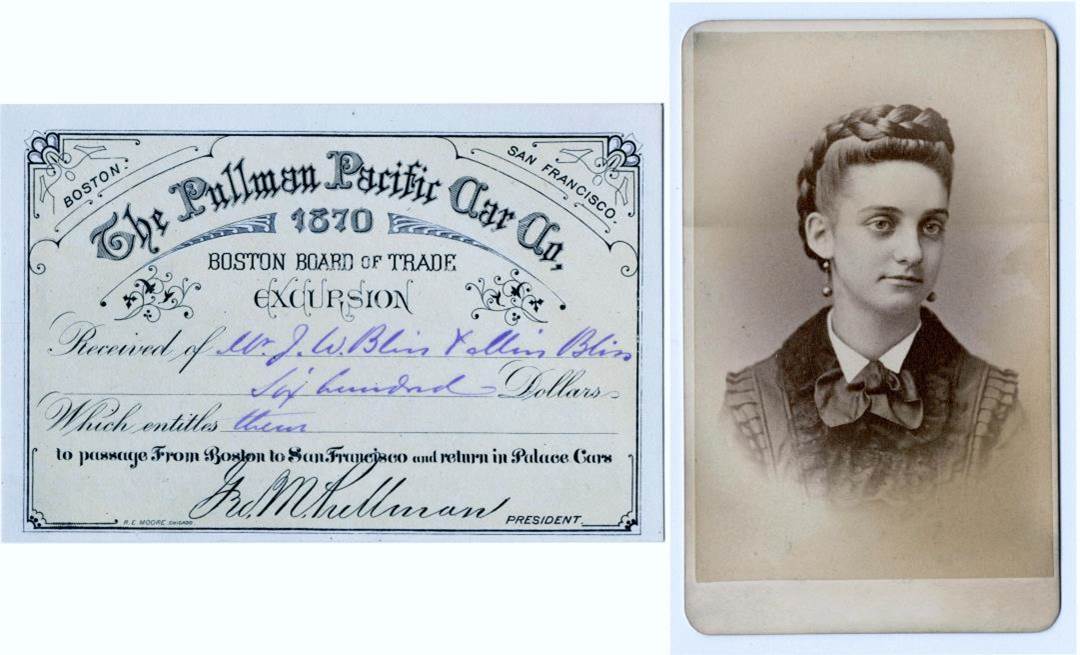 BOSTON.
SAN FRANCISCO.
The Pullman Pacific Car Co,
1870
BOSTON BOARD OF TRADE
EXCURSION
Received of Mr. J. W. Bliss & Miss Bliss
Six hundred Dollars
Which entitles them
to passage From Boston to San Francisco and return in Palace Cars
Geo. M. Pullman PRESIDENT.
R. E. MOORE, CHICAGO